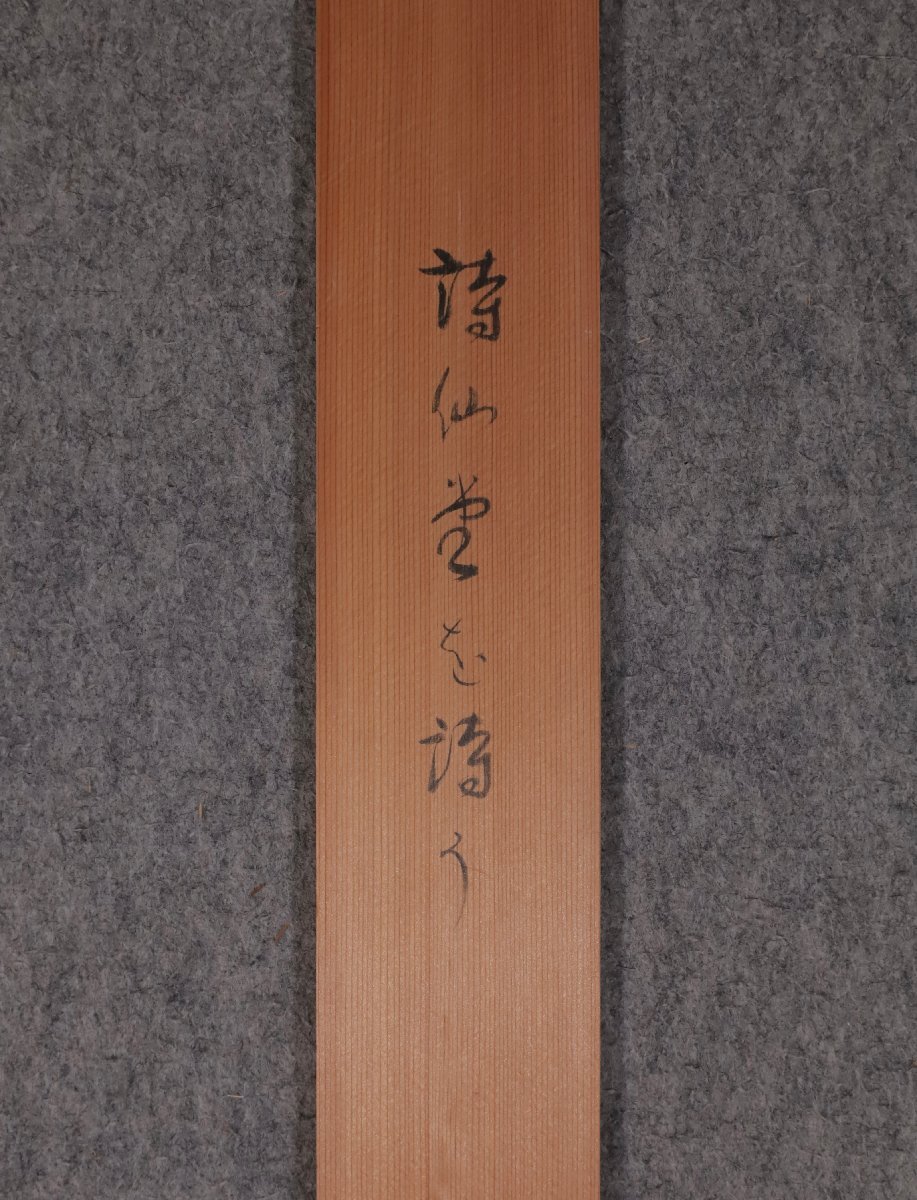 詩仙堂を詩う